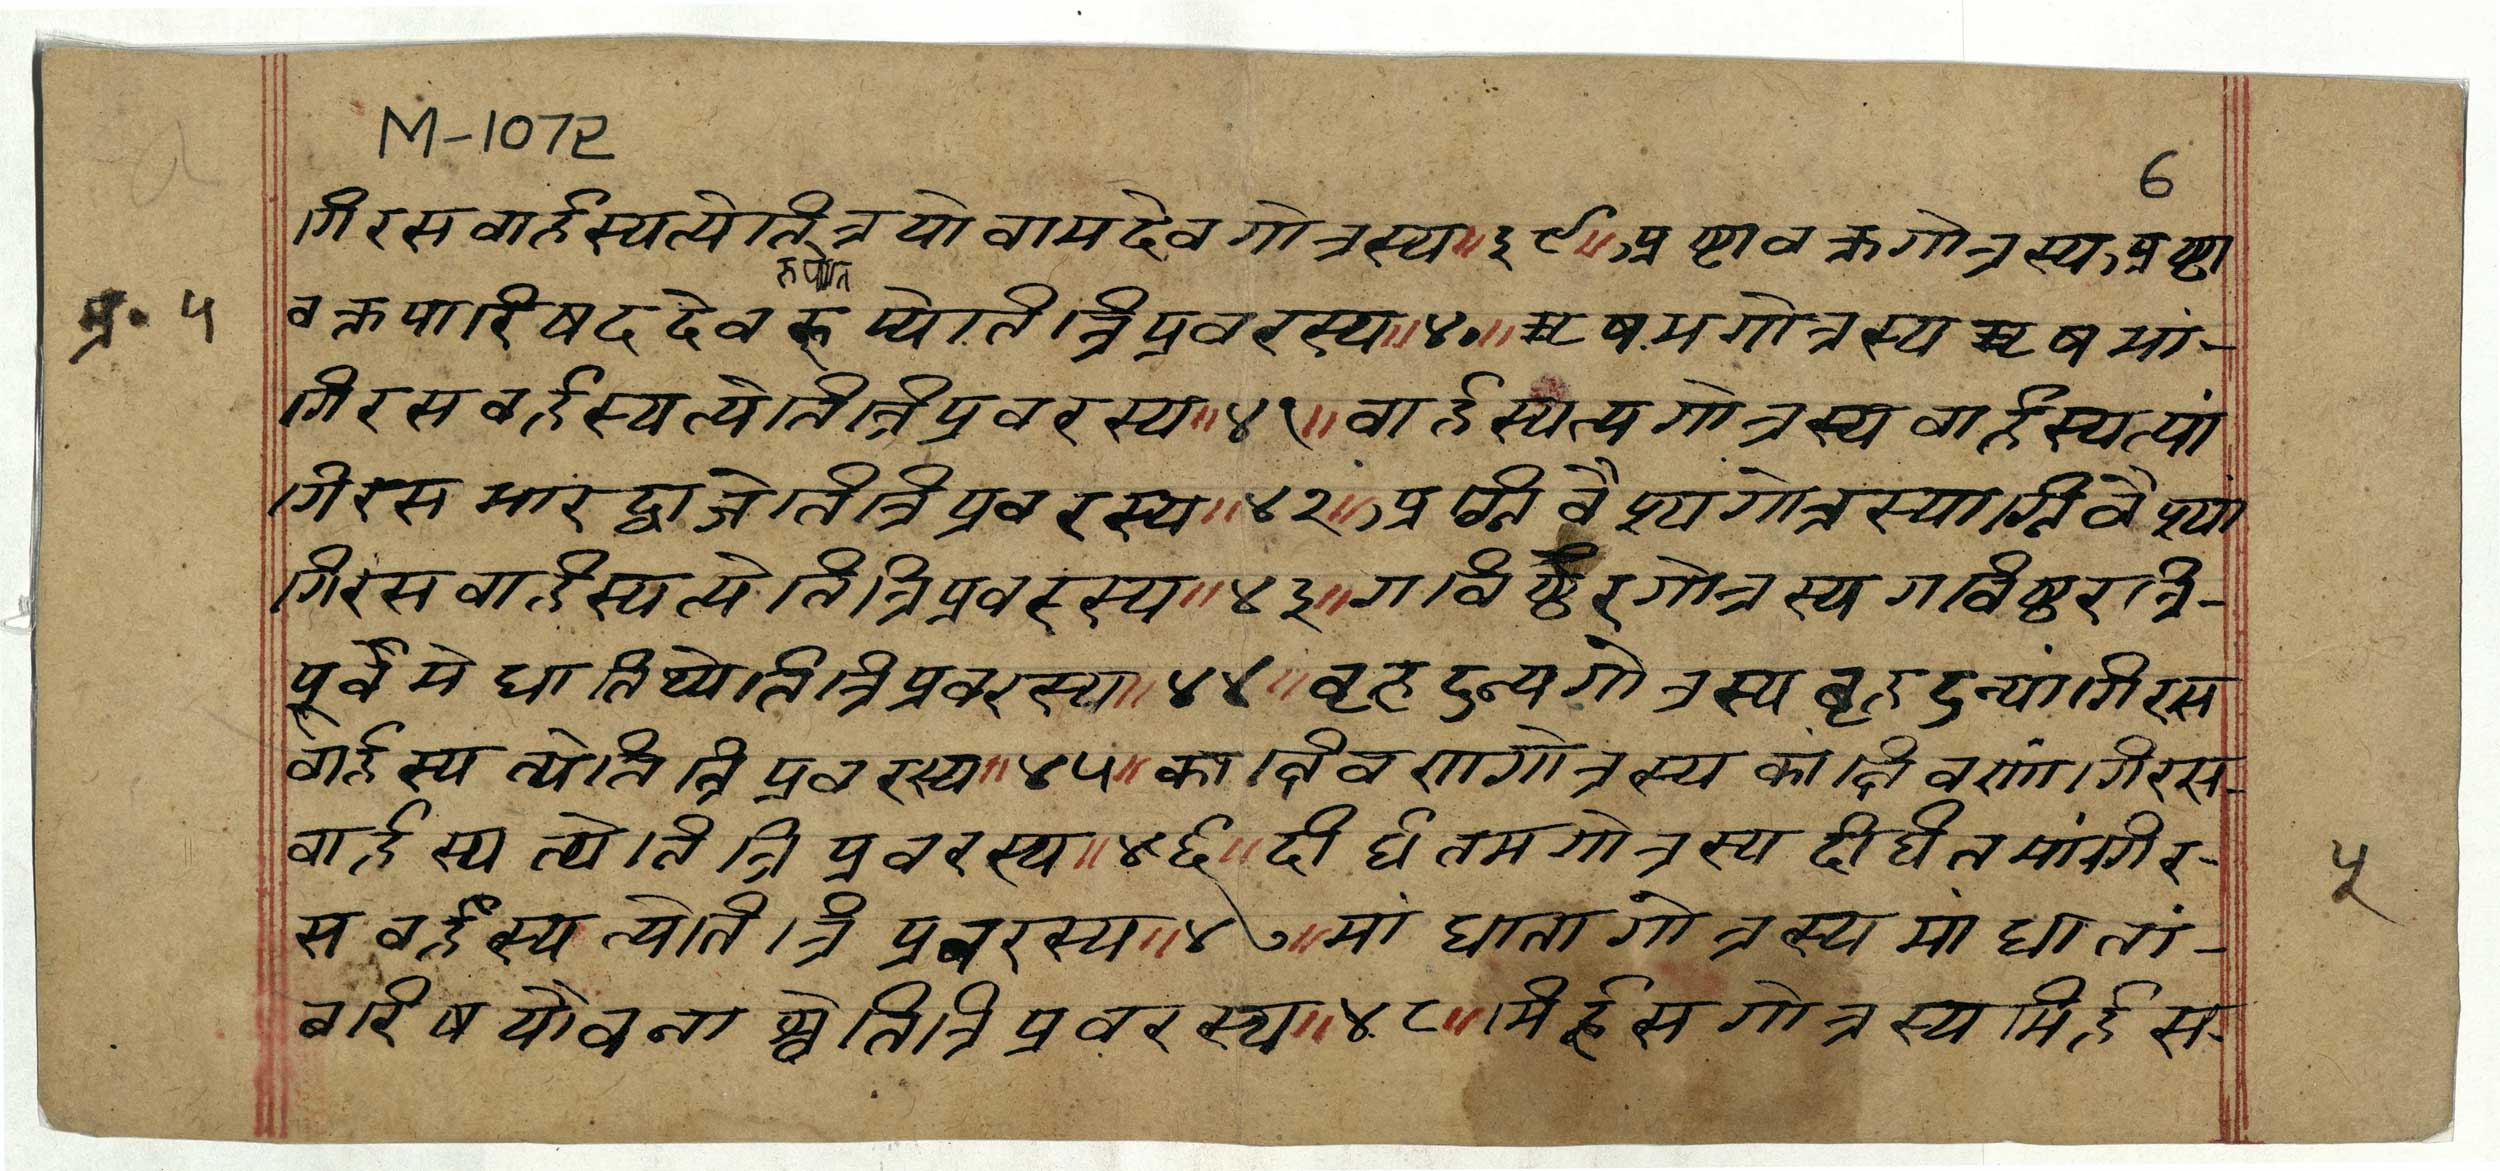 M-1072
6
गिरसवार्हस्पत्येतित्रयोवामदेवगोत्रस्य॥३९॥अष्टावक्रगोत्रस्यअष्टा
प्र॰ ५
वक्रपारिषददेवरूप्येतित्रिप्रवरस्य॥४०॥ऋषभगोत्रस्यऋषभां-
गिरसवर्हस्पत्येतित्रिप्रवरस्य॥४१॥वार्हस्पत्यगोत्रस्यवार्हस्पत्यां
गिरसभारद्वाजेतित्रिप्रवरस्य॥४२॥अग्निवैश्यगोत्रस्याग्निवैश्यां
गिरसवार्हस्पत्येतित्रिप्रवरस्य॥४३॥गविष्ठिरगोत्रस्यगविष्ठरत्रि-
पूर्वमेधातिथ्येतित्रिप्रवरस्य॥४४॥वृहदुन्यगोत्रस्यबृहदुन्यांगिरस
वार्हस्पत्येतित्रिप्रवरस्य॥४५॥काक्षिवणगोत्रस्यकाक्षिवणांगिरस-
वार्हस्पत्येतित्रिप्रवरस्य॥४६॥दीर्घतमगोत्रस्यदीर्घतमांगिर-
सवर्हस्पत्येतित्रिप्रवरस्य॥४७॥मांधातागोत्रस्यमांधातां-
बरिषयौवनाश्वेतित्रिप्रवरस्य॥४८॥मिर्हसगोत्रस्यमिर्हस-
५